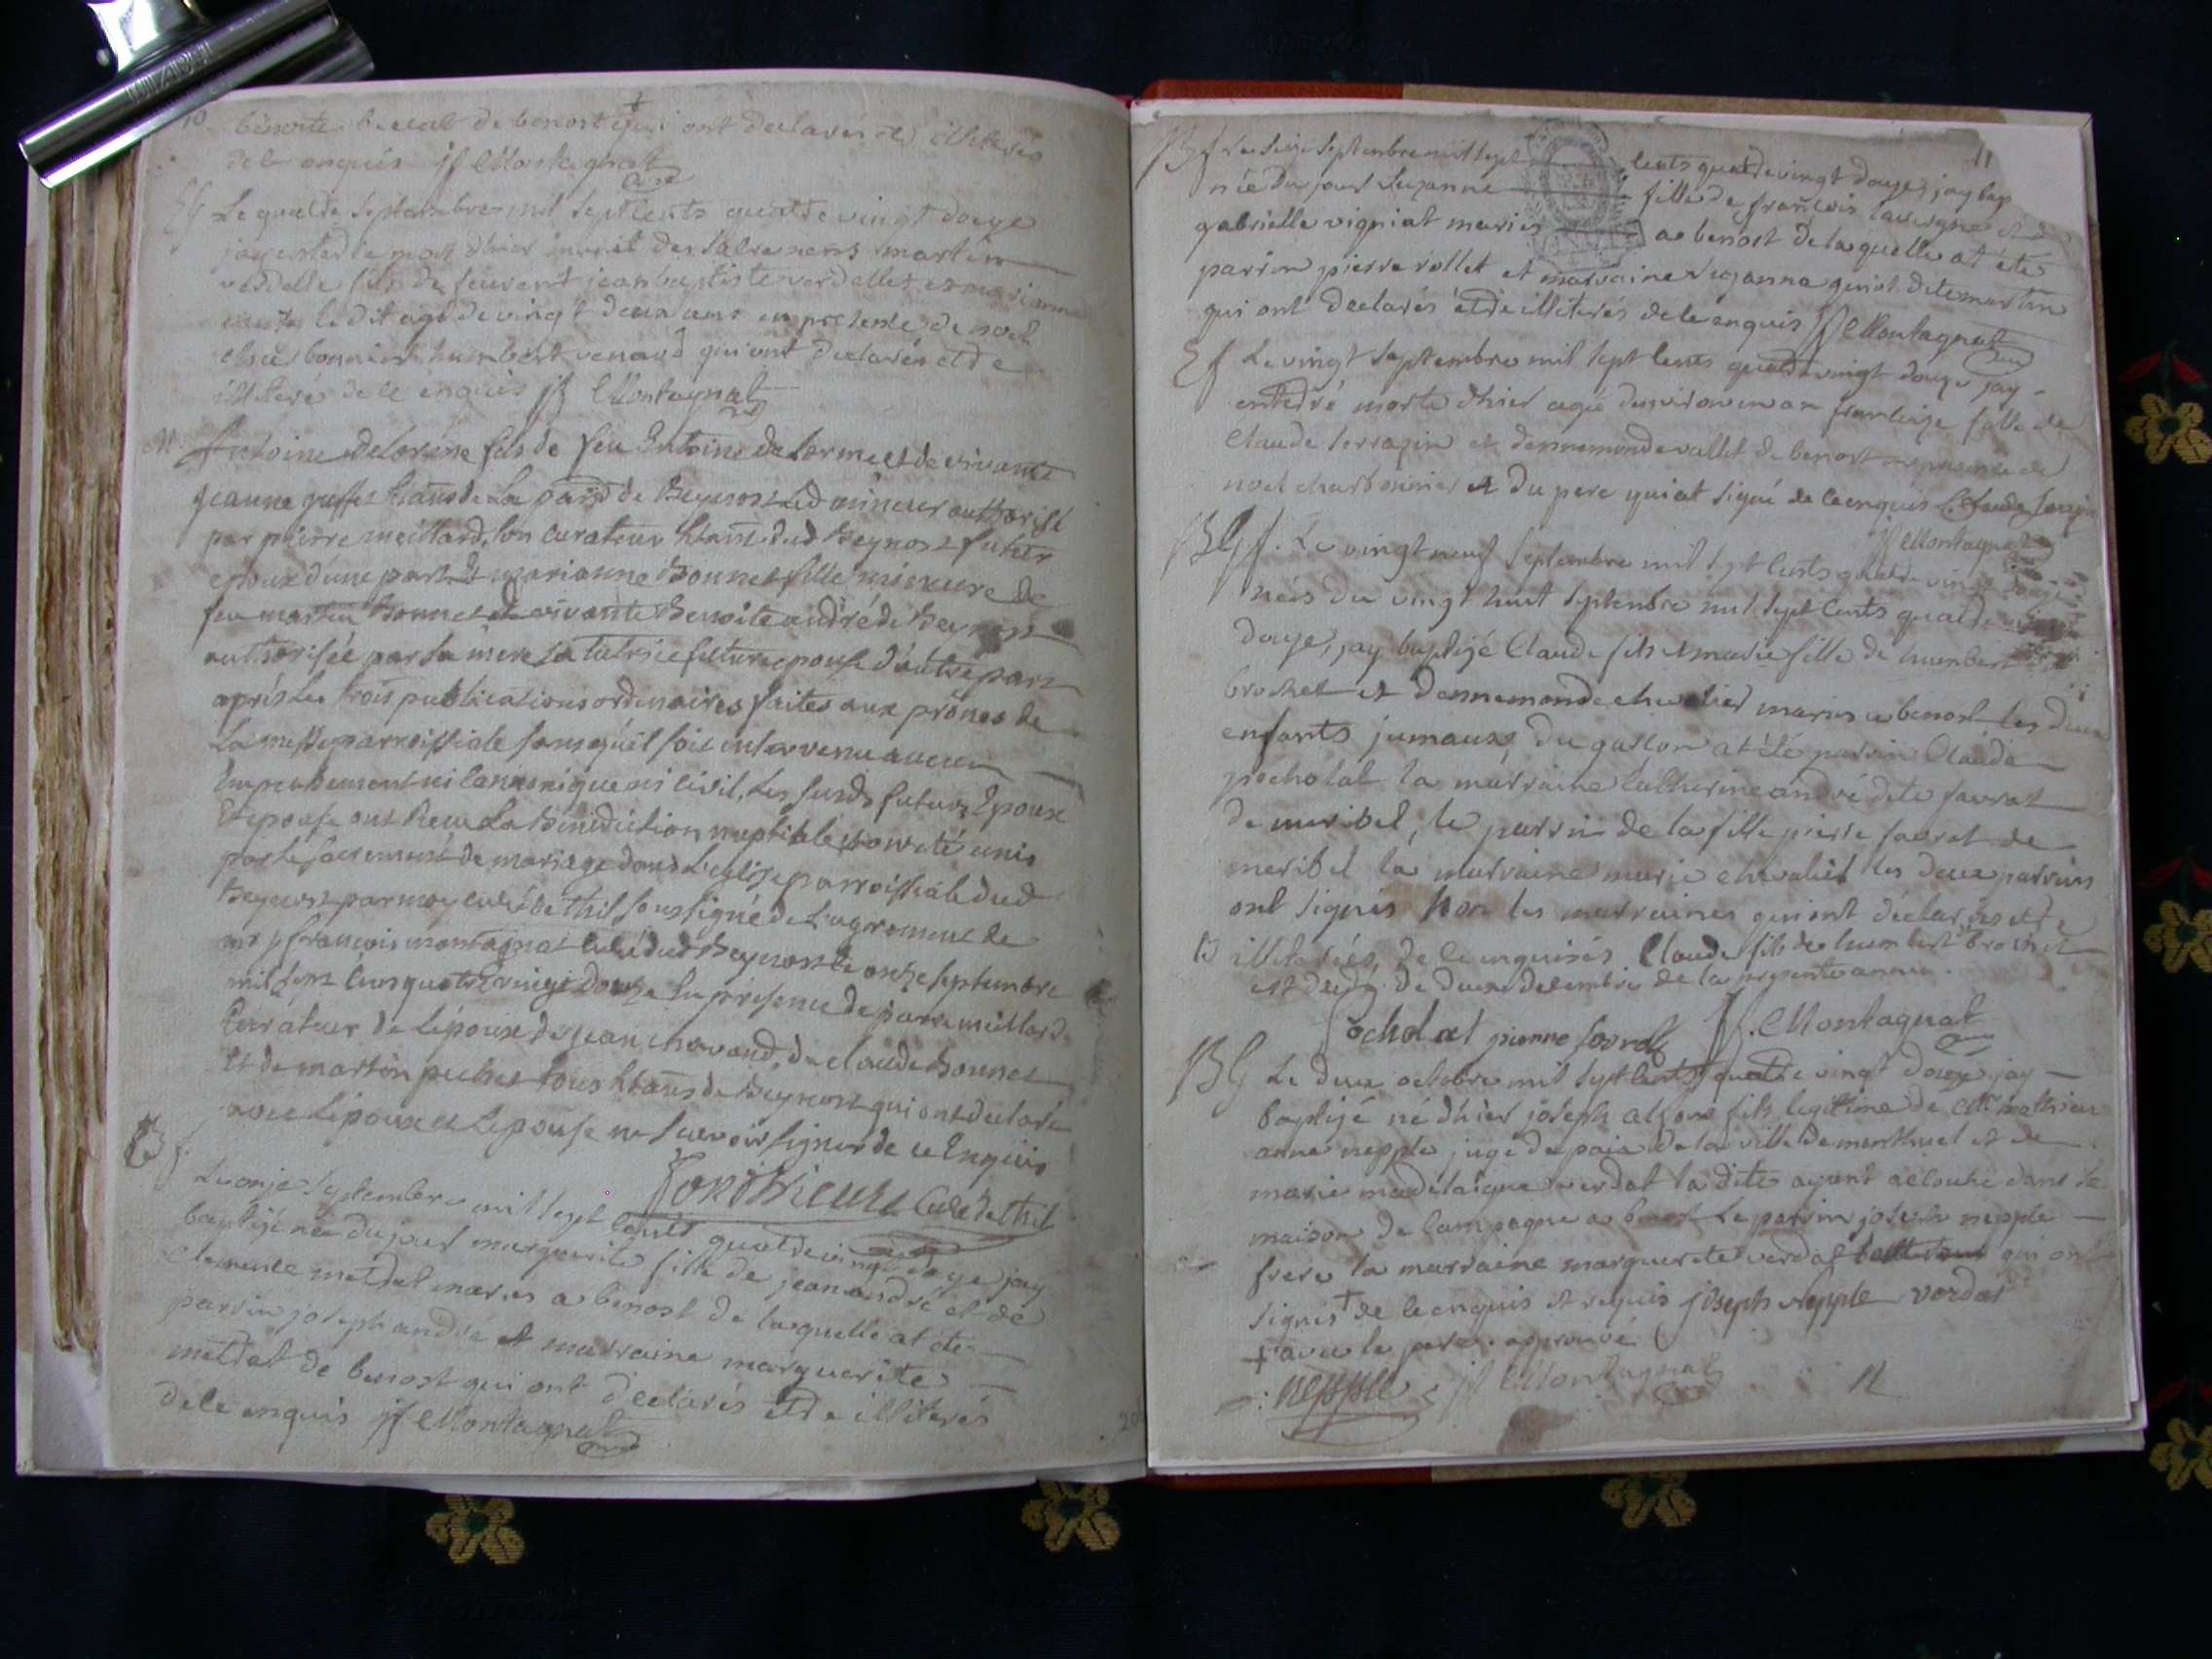 10
benoite de benost qui ont declarés etre illiterés
de le enquis jf Montagnat
curé
Le quatre Septembre mil Sept Cents quatre vingt douze
jay enterré mort d'hier muni des Sacremens martin
verdellet fils de feu jean baptiste verdellet et marianne
le dit agé de vingt deux ans en presence de noel
charbonnier humbert venard qui ont declarés etre
illiteré de le enquis jf Montagnat
M. Antoine delorme fils de feu Antoine delorme et de vivante
jeanne habitans de La paroisse de Beynost Led mineur authorisé
par pierre meillard son curateur habitant dud Beynost futur
epoux d'une part & marianne Bonnet fille mineure de
feu martin Bonnet et vivante Benoite andré de Beynost
authorisée par sa mere sa tutrice future epouse d'autre part
après les trois publications ordinaires faites aux prônes de
La messe parroissiale sans qu'il soit intervenu aucun
Empechement ni Cannonique ni Civil, Les susds futurs Epoux
Et epouse ont Recu La Bénédiction nuptiale et ont eté unis
par le sacrement de mariage dans L'eglise parroissiale dud
Beynost par moy curé de thil soussigné de L'agrement de
mr jfrançois montagnat Curé dud Beynost Le onze septembre
mil sept Cens quatre vingt douze En presence de pierre meillard
Curateur de L'époux de jean chavand, de claude Bonnet
Et de martin pechet tous habitans de Beynost qui ont declaré
avec L'époux et L'epouse ne sçavoir signer de ce Enquis
Curé de thil
B f. Le onze Septembre mil sept Cents quatre vingt douze jay
baptizé née du jour marguerite fille de jean andré et de
Clemence metrat mariés a benost de laquelle at eté
parrin joseph andré et marraine marguerite
metrat de benost qui ont declarés etre illiterés
de le enquis jf Montagnat
11
B f Le Seize Septembre mil Sept Cents quatre vingt douze, jay bap
née du jour Suzanne fille de françois lavergne et de
gabrielle vigniat mariés a benost de laquelle at eté
parrin pierre rollet et marraine Suzanne guiot dite martin
qui ont declarés etre illiterés de le enquis jf Montagnat
E f Le vingt Septembre mil Sept Cents quatre vingt douze jay
enterré morte d'hier agée d'environ un an françoise fille de
Claude terrapin et dennemonde vallet de benost en presence de
noel charbonnier et du pere qui at signé de le enquis Claude
jf Montagnat
B G f. Le vingt neuf Septembre mil Sept Cents quatre vingt douze
néés du vingt huit Septembre mil Sept Cents quatre vingt
douze, jay baptizé Claude fils et marie fille de humbert
brochet et dennemonde chevalier mariés a benost les deux
enfants jumaux, du garson at eté parrin Claude
pocholat la marraine Catherine andré dite favrat
de miribel, le parrin de la fille pierre favrot de
meribel la marraine marie chevalier les deux parrins
ont signés non les marraines qui ont déclarées etre
illiterées de le enquises Claude fils de humbert brochet
est decedé de deux decembre de la presente année.
Pocholat pierre favrot jf. Montagnat
B G Le deux octobre mil Sept Cents quatre vingt douze jay
baptizé né d'hier joseph alfonse fils legitime de Mr mathieu
anné nepple juge de paix de la ville de montluel et de
marie madelaigne verdat la dite ayant acouché dans sa
maison de Campagne a benost Le parrin joseph nepple
frere la marraine marguerite verdat qui ont
signés + de le enquis et requis joseph Nepple verdat
+ avec le pere. approuvé
nepple jf Montagnat